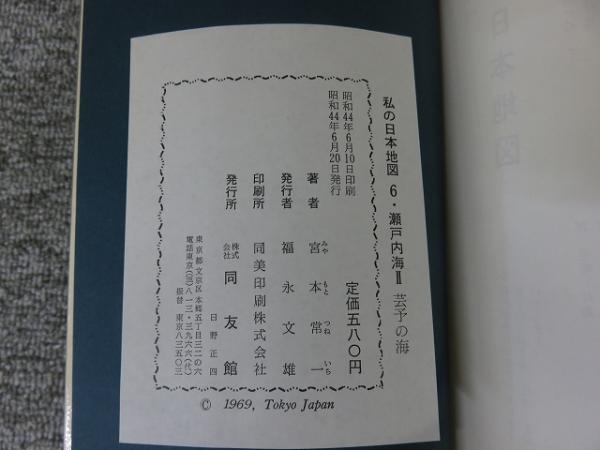 私の日本地図 6・瀬戸内海Ⅱ 芸予の海
昭和44年6月10日印刷
昭和44年6月20日発行
定価五八〇円
著者 宮本常一
みや もと つね いち
発行者 福永文雄
印刷所 同美印刷株式会社
日野正四
発行所 株式会社 同友館
東京都文京区本郷五丁目三二の六
電話東京(三)八一三・三九六六(代)
振替 東京八三五〇三
© 1969, Tokyo Japan
日本地図